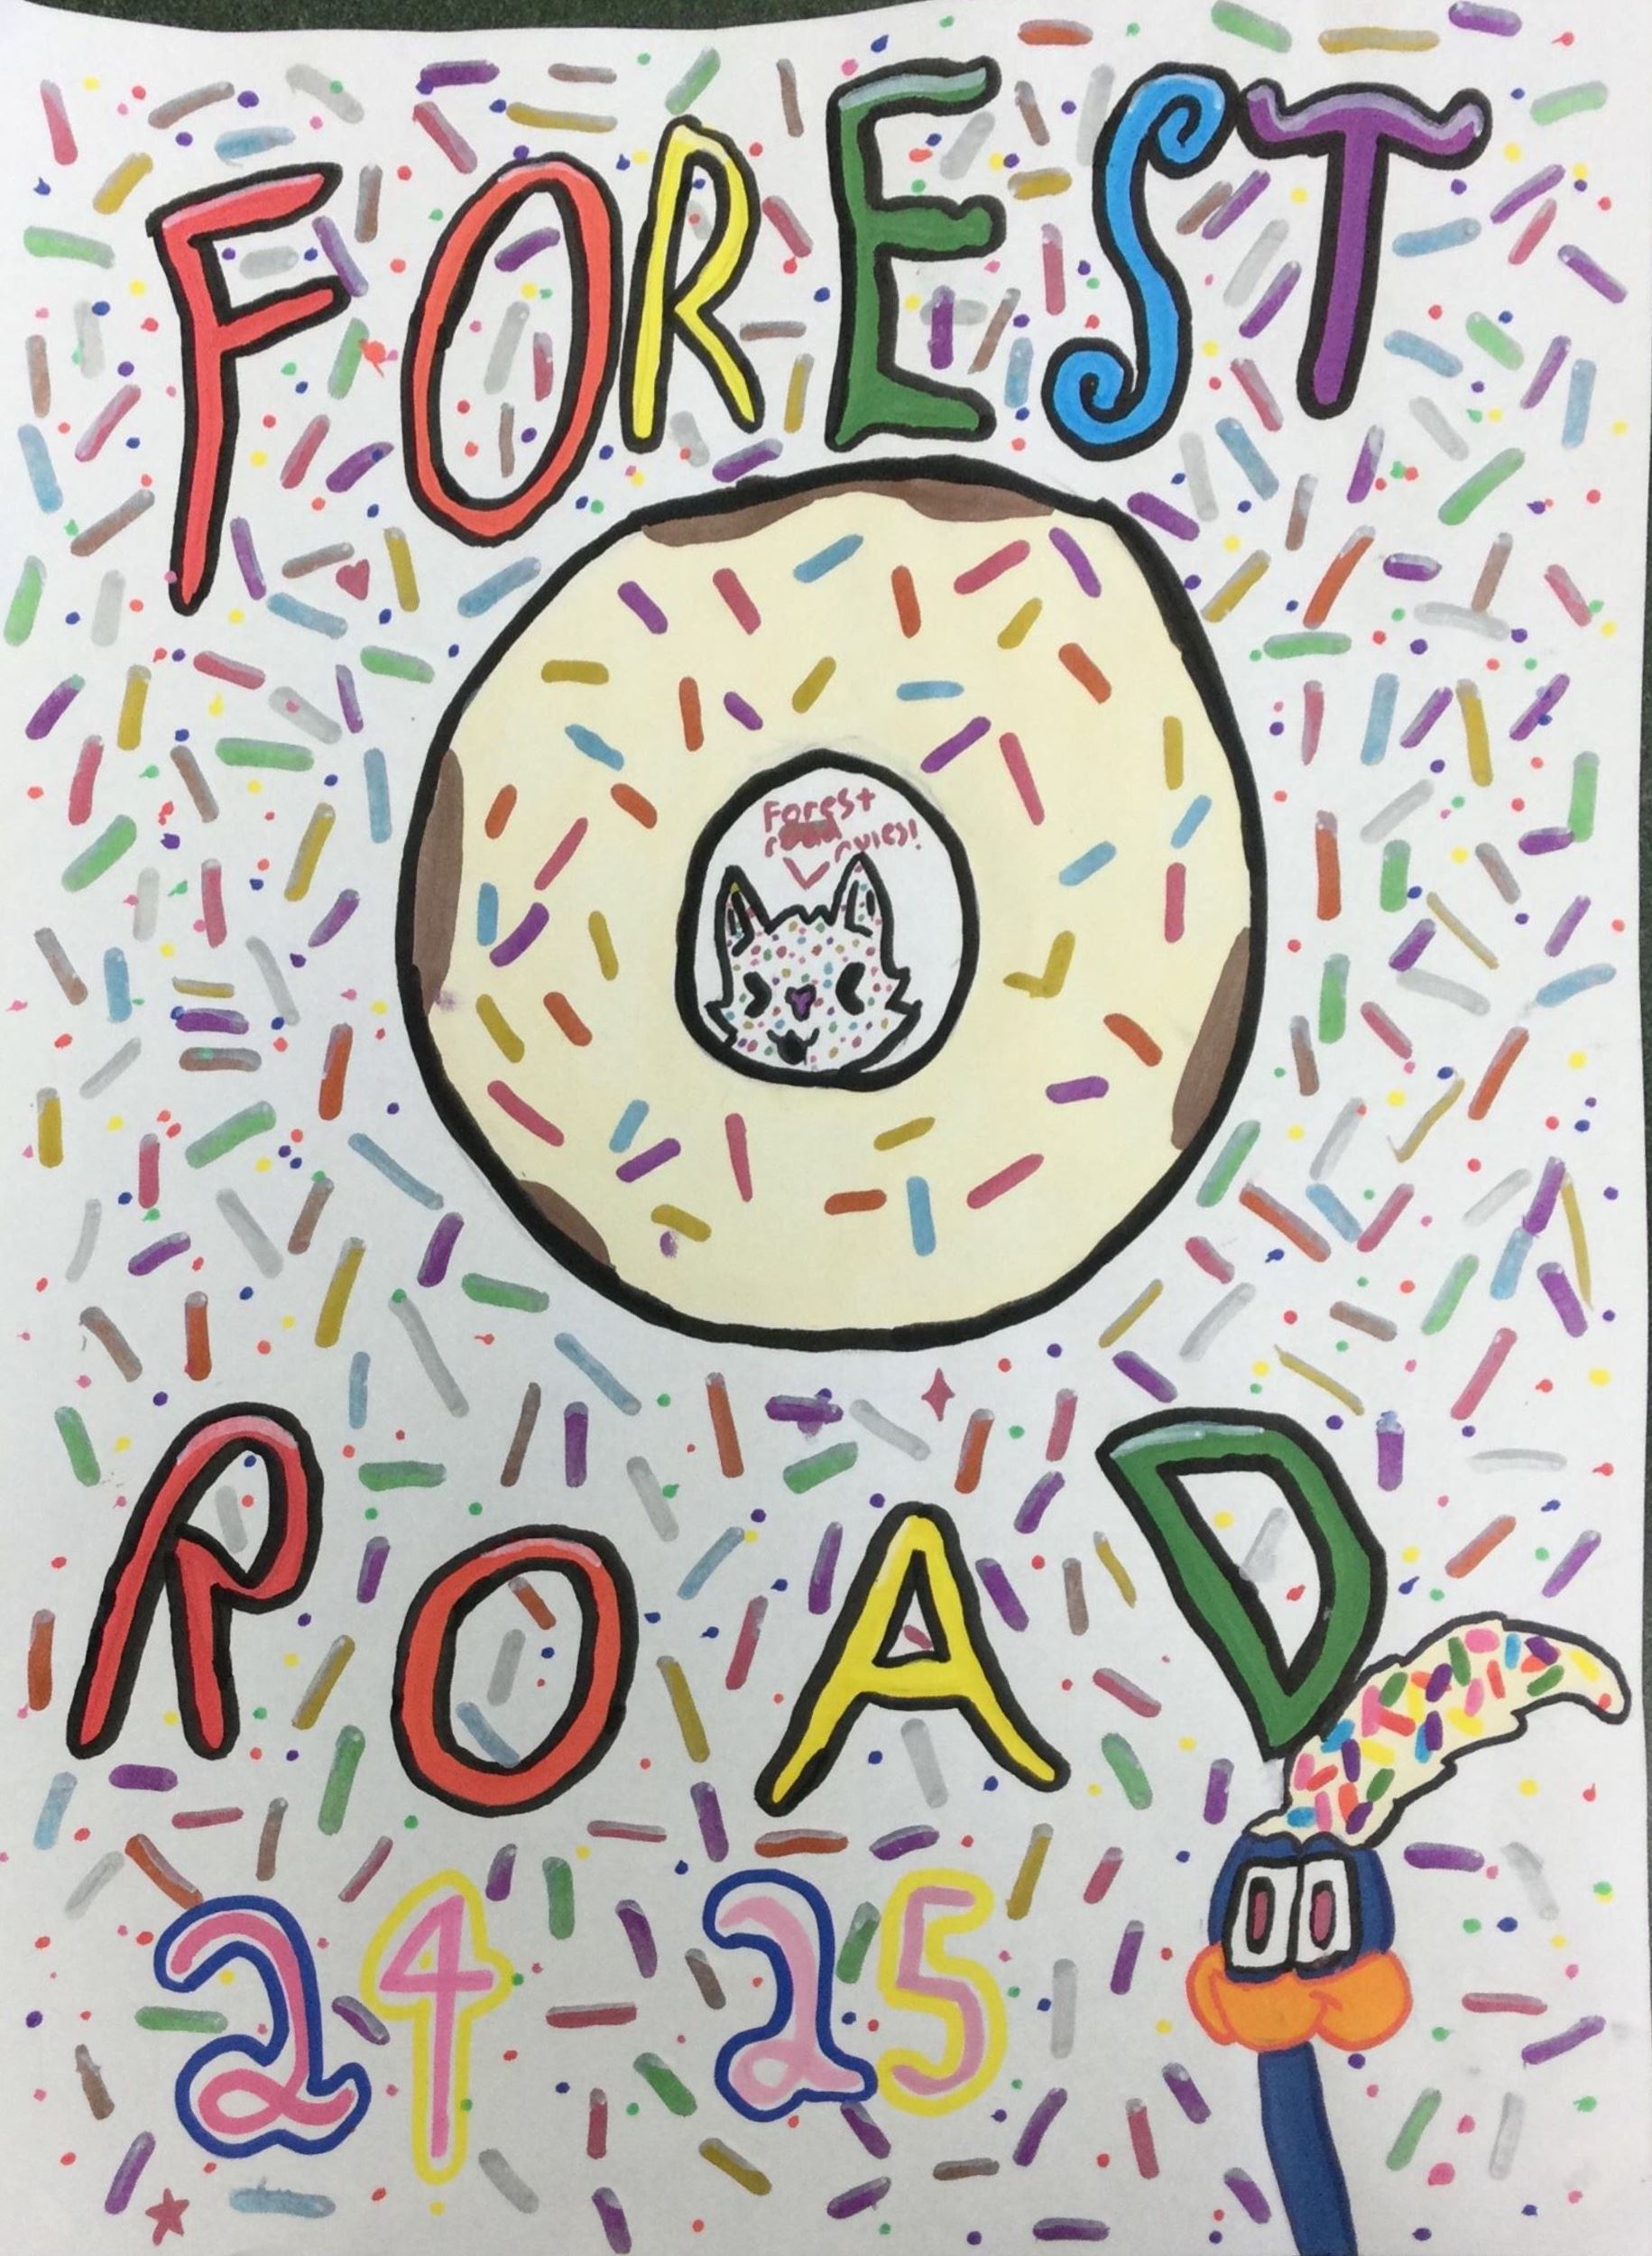 FOREST
Forest
road rules!
ROAD
24 25